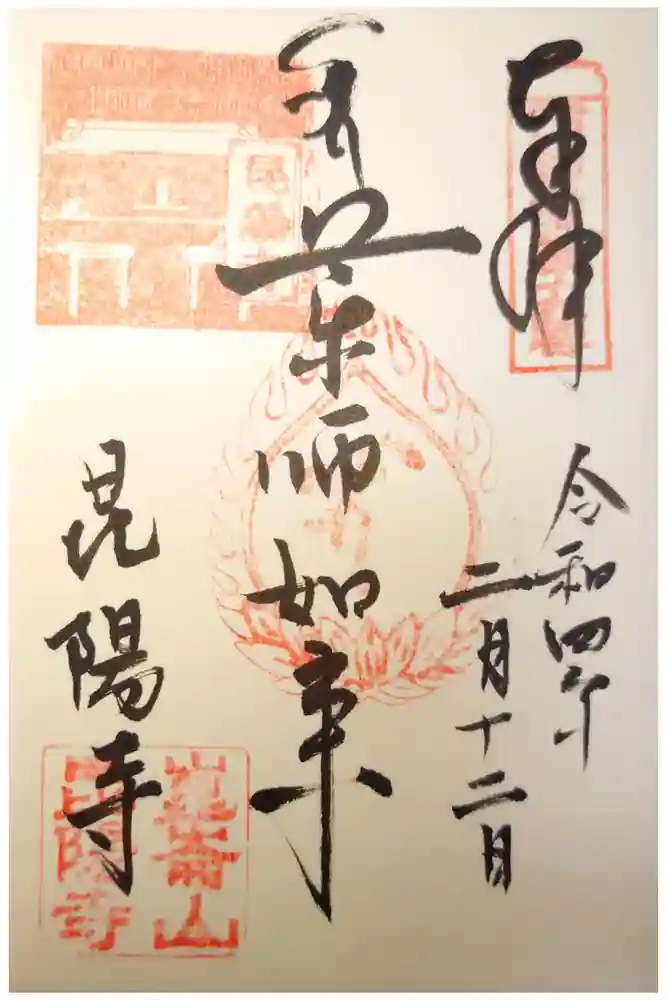 奉拝
令和四年
二月十二日
薬師如来
昆陽寺
崑崙山
昆陽寺